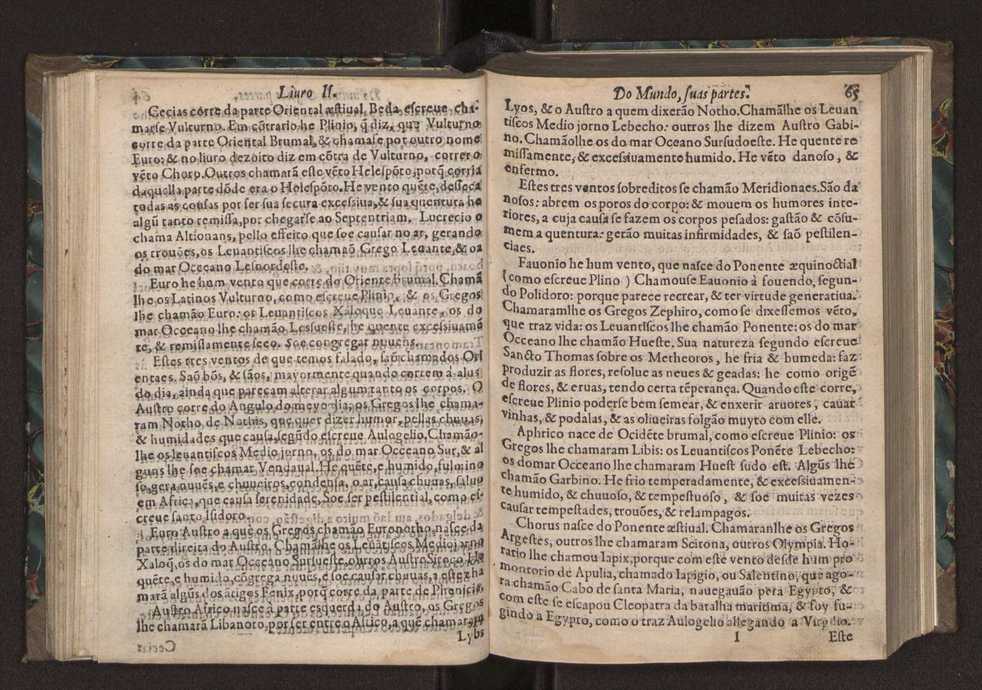 Liuro II.
Cecias corre da parte Oriental æstiual. Beda escreue cha-
marse Vulturno. Em cõtrario he Plinio, q̃ diz, que Vulturno
corre da parte Oriental Brumal, & chamase por outro nome
Euro: & no liuro dezoito diz em cõtra de Vulturno, correr o
vẽto Choro. Outros chamarã este vẽto Helespõto, porq̃ corria
daquella parte dõde era o Helespõto. He vento quẽte, desseca
todas as cousas por ser sua secura excessiua, & sua quentura he
algũ tanto remissa, por chegarse ao Septentriam, Lucrecio o
chama Altionans, pello effeito que soe causar no ar, gerando
os trouões, os Leuantiscos lhe chamaõ Grego Leuante, & os
do mar Occeano Lesnordeste.
Euro he hum vento que corre do Oriente brumal. Chamã
lhe os Latinos Vulturno, como escreue Plinio, & os Gregos
lhe chamão Euro: os Leuantiscos Xaloque Leuante, os do
mar Occeano lhe chamão Lessueste, he quente excessiuamẽ
te, & remissamente seco. Soe congregar nuuẽs.
Estes tres ventos de que temos falado, saõ chamados Ori
entaes. Saõ bõs, & sãos, mayormente quando correm á alua
do dia, ainda que pareçam alterar algum tanto os corpos. O
Austro corre do Angulo do meyo dia, os Gregos lhe chama-
ram Notho, de Natins, que quer dizer humor, pellas chuuas,
& humidades que causa, segũdo escreue Aulogelio. Chamão-
lhe os leuantiscos Medio jorno, os do mar Occeano Sur, & al
guns lhe soe chamar Vendaual. He quẽte, e humido, fulmino
so, gera nuuẽs, e chuueiros, condensa, o ar, causa chuuas, saluo
em Africa, que causa serenidade, Soe ser pestilencial, como es-
creue santo Isidoro.
Euro Austro a que os Gregos chamão Euronotho, nasce da
parte direita do Austro. Chamãlhe os Leuãtiscos Medio jorno
Xaloq̃, os do mar Occeano Sursueste, outros Austro Siroco. He
quẽte, e humido, cõgrega nuuẽs, e soe causar chuuas, a este cha
marã algũs dos ãtigos Fenix, porq̃ corre da parte de Phenicia.
Austro Africo nasce à parte esquerda do Austro, os Gregos
lhe chamarã Libanoto, por ser entre o Africo, a quẽ chamarão
Lybs
Do Mundo, suas partes. 65
Lyos, & o Austro a quem dixerão Notho. Chamãlhe os Leuan
tiscos Medio jorno Lebecho: outros lhe dizem Austro Gabi-
no. Chamãolhe os do mar Oceano Sursudoeste. He quente re
missamente, & excessiuamente humido. He vẽto danoso, &
enfermo.
Estes tres ventos sobreditos se chamão Meridionaes. São da
nosos: abrem os poros do corpo: & mouem os humores inte-
riores, a cuja causa se fazem os corpos pesados: gastão & cõsu-
mem a quentura: gerão muitas infirmidades, & saõ pestilen-
ciaes.
Fauonio he hum vento, que nasce do Ponente æquinoctial
(como escreue Plino) Chamouse Eauonio á fouendo, segun-
do Polidoro: porque pareee recrear, & ter virtude generatiua.
Chamaramlhe os Gregos Zephiro, como se dixessemos vẽto,
que traz vida: os Leuantiscos lhe chamão Ponente: os do mar
Occeano lhe chamão Hueste. Sua natureza segundo escreue
Sancto Thomas sobre os Metheoros, he fria & humeda: faz
produzir as flores, resolue as neues & geadas: he como origẽ
de flores, & eruas, tendo certa tẽperança. Quando este corre,
escreue Plinio poderse bem semear, & enxerir aruores, cauar
vinhas, & podalas, & as oliueiras folgão muyto com elle.
Aphrico nace de Ocidẽte brumal, como escreue Plinio: os
Gregos lhe chamaram Libis: os Leuantiscos Ponẽte Lebecho:
os domar Occeano lhe chamaram Huest sudo est. Algũs lhe
chamão Garbino. He frio temperadamente, & excessiuamen-
te humido, & chuuoso, & tempestuoso, & soe muitas vezes
causar tempestades, trouões, & relampagos.
Chorus nasce do Ponente æstiual. Chamaranlhe os Gregos
Argestes, outros lhe chamaram Scirona, outros Olympia. Ho-
ratio lhe chamou Iapix, porque com este vento desde hum pro
montorio de Apulia, chamado Iapigio, ou Salentino, que ago-
ra chamão Cabo de santa Maria, nauegauão pera Egypto, &
com este se escapou Cleopatra da batalha maritima, & foy fu-
gindo a Egypro, como o traz Aulogelio allegando a Virgilio.
I Este